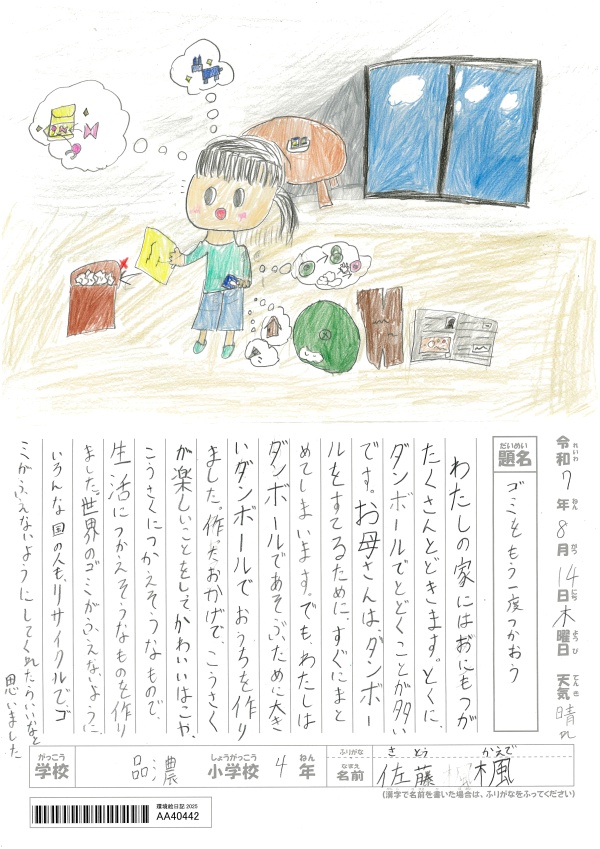 令和7年8月14日木曜日 天気 晴れ
れいわ ねん がつ にち ようび てんき
だいめい
題名 ゴミをもう一度つかおう
わたしの家にはおにもつが
たくさんとどきます。とくに、
ダンボールでとどくことが多い
です。お母さんは、ダンボー
ルをすてるために、すぐにまと
めてしまいます。でも、わたしは
ダンボールであそぶために大き
いダンボールでおうちを作り
ました。作ったおかげで、こうさく
が楽しいことをしてかわいいはこや、
こうさくにつかえそうなもので、
生活につかえそうなものを作り
ました。世界のゴミがふえないように、
いろんな国の人も、リサイクルで、ゴ
ミがふえないようにしてくれたらいいなと
思いました
がっこう しょうがっこう ねん
学校 品濃 小学校 4 年
ふりがな さとう かえで
なまえ
名前 佐藤 楓
(漢字で名前を書いた場合は、ふりがなをふってください)
環境絵日記 2025
AA40442